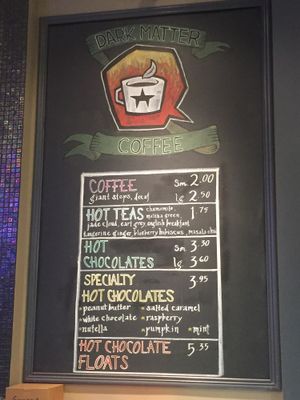 DARK MATTER
COFFEE
COFFEE Sm. 2.00
giant steps, decaf lg 2.50
HOT TEAS chamomile, 1.75
matcha green,
jade cloud, earl grey, english breakfast
tangerine ginger, blueberry hibiscus, masala chai
HOT Sm 3.30
CHOCOLATES lg 3.60
SPECIALTY 3.95
HOT CHOCOLATES
peanut butter salted caramel
white chocolate raspberry
nutella pumpkin mint
HOT CHOCOLATE 5.55
FLOATS